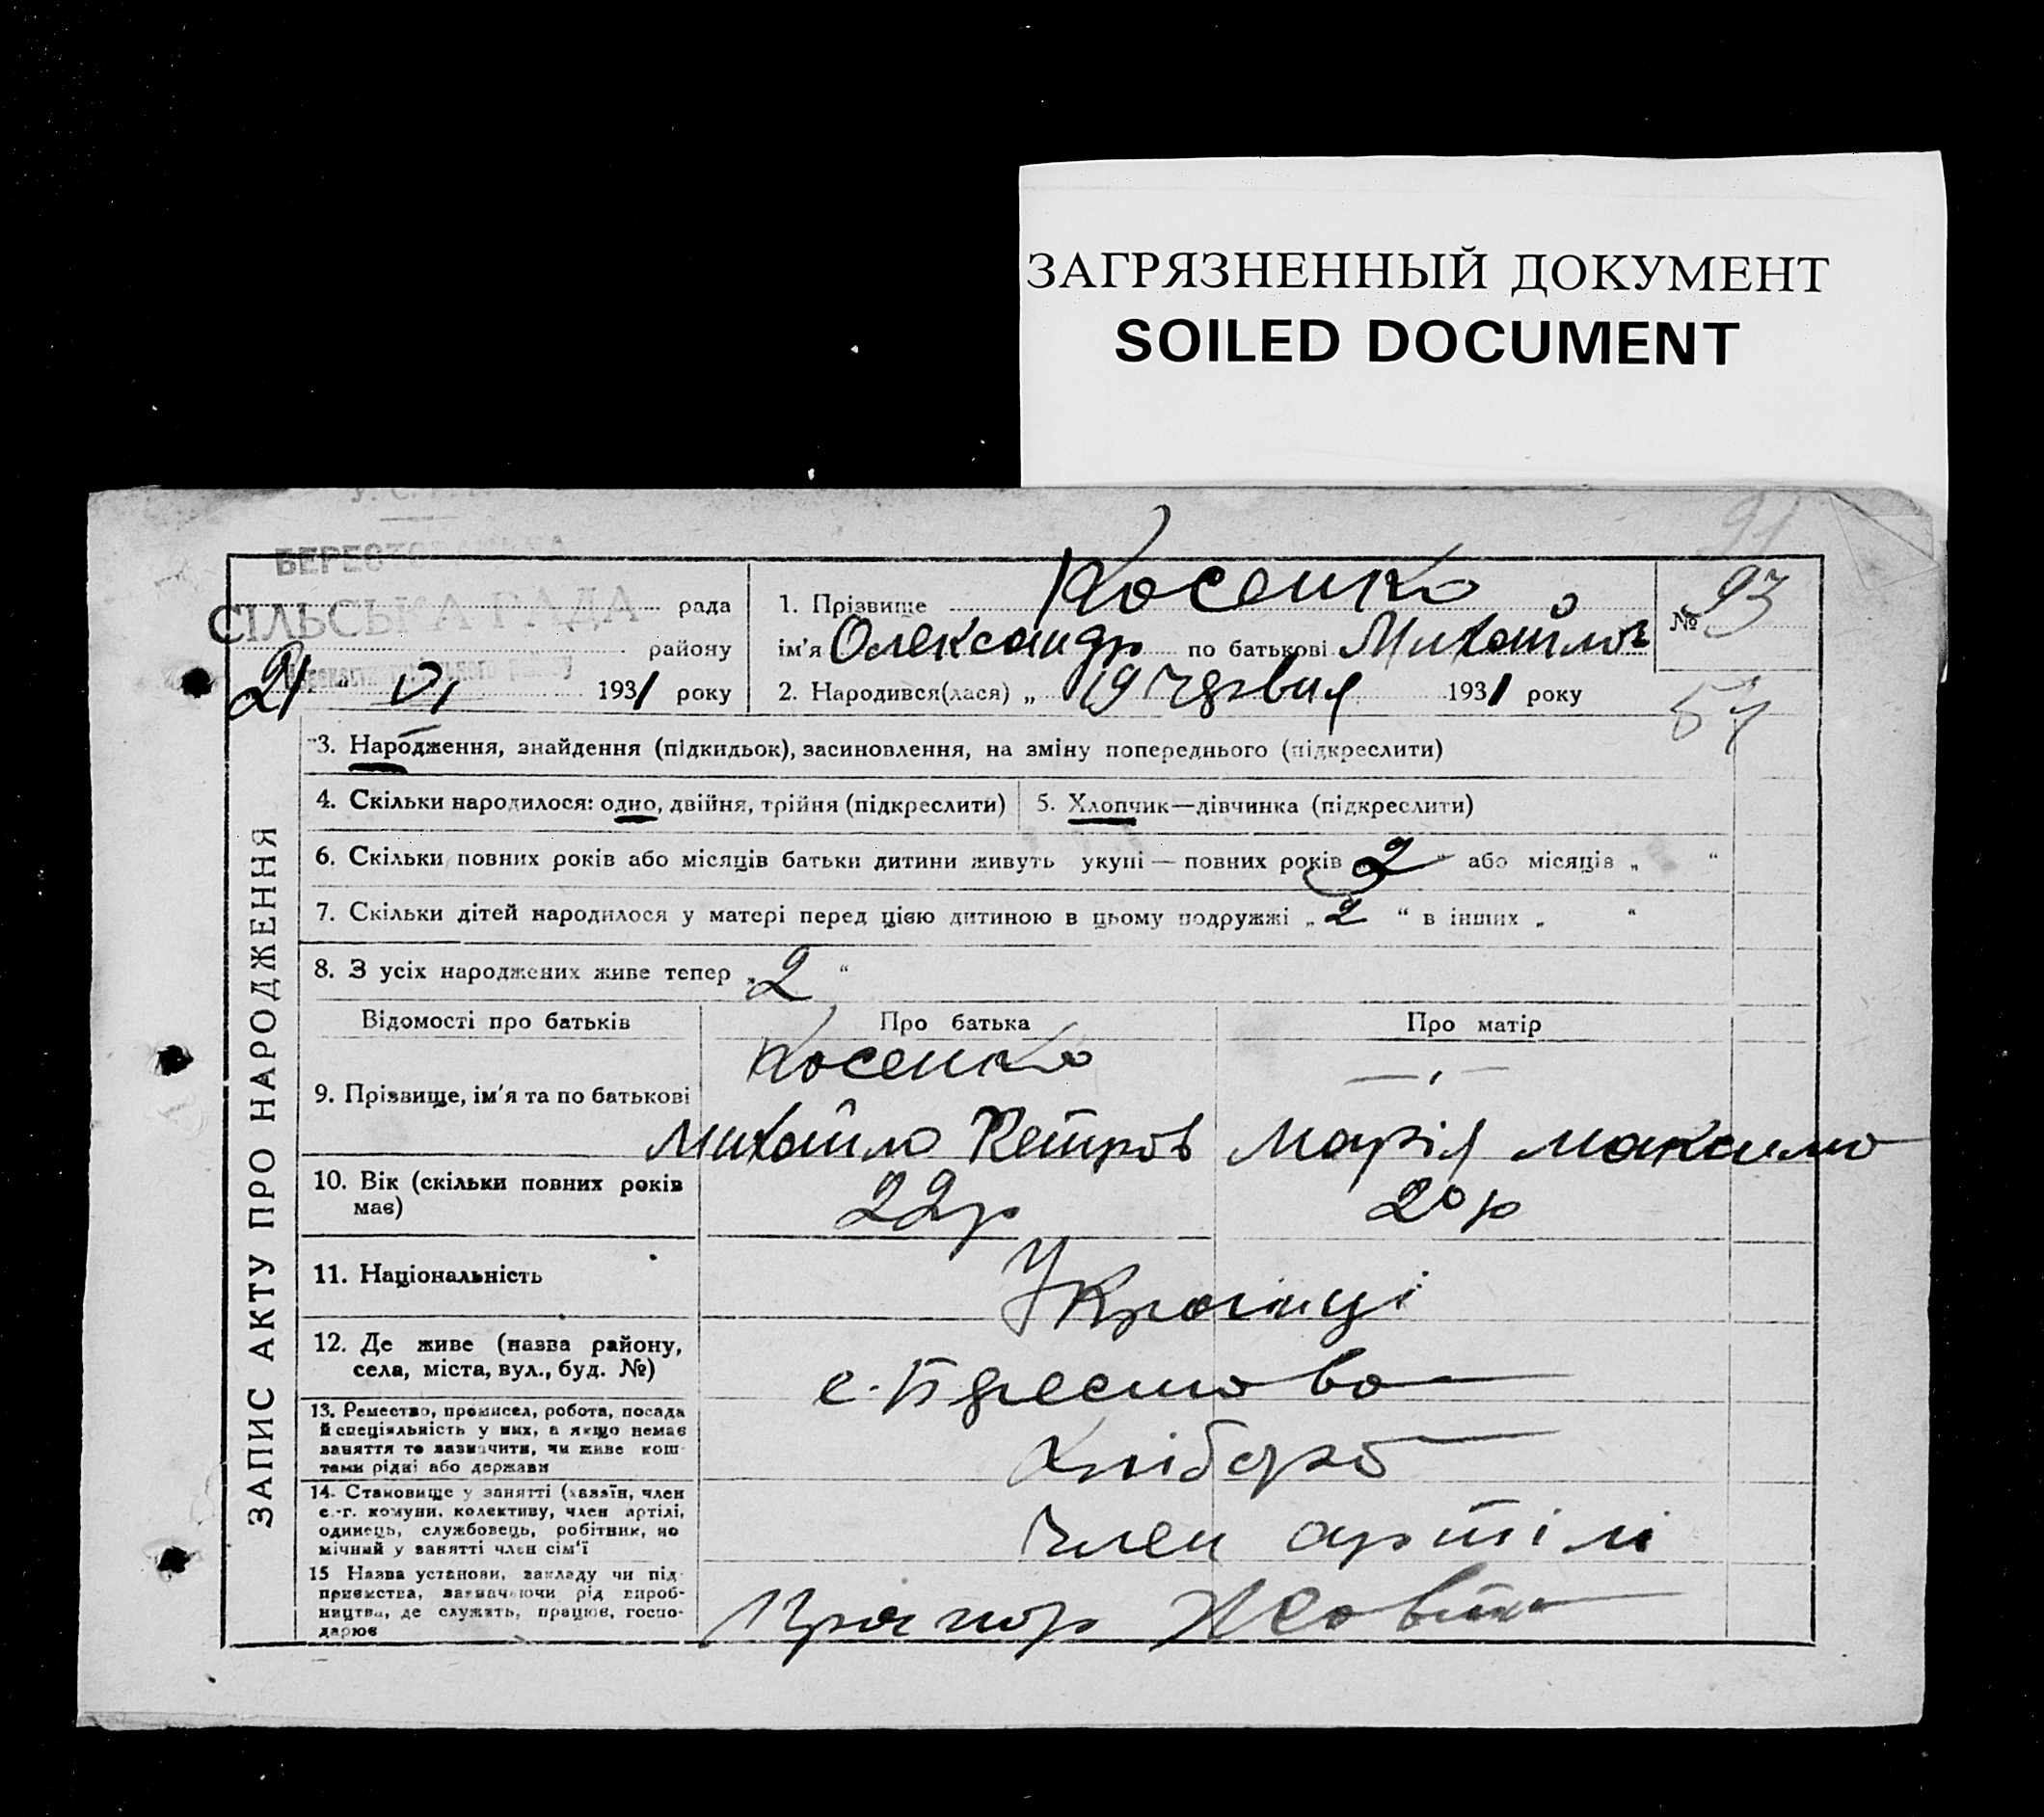 ЗАГРЯЗНЕННЫЙ ДОКУМЕНТ
SOILED DOCUMENT
91
СІЛЬСЬКА РАДА
рада
району
21 " VI 1931 року
1. Прізвище Косенко
ім'я Олександр по батькові Михайлов
2. Народився(лася) „ 19 червня 1931 року
№ 93
57
ЗАПИС АКТУ ПРО НАРОДЖЕННЯ
3. Народження, знайдення (підкидьок), засиновлення, на зміну попереднього (підкреслити)
4. Скільки народилося: одно, двійня, трійня (підкреслити)
5. Хлопчик—дівчинка (підкреслити)
6. Скільки повних років або місяців батьки дитини живуть укупі — повних років „ 2 " або місяців „ "
7. Скільки дітей народилося у матері перед цією дитиною в цьому подружжі „ 2 " в інших „ "
8. З усіх народжених живе тепер „ 2 "
Відомості про батьків
Про батька
Про матір
9. Прізвище, ім'я та по батькові
Косенко
— „ —
Михайло Петров
Марія Максимо
10. Вік (скільки повних років
має)
22 р
20 р
11. Національність
Українці
12. Де живе (назва району,
села, міста, вул., буд. №)
с. Берестово
13. Ремество, промисел, робота, посада
й спеціяльність у них, а якщо немає
заняття то зазначити, чи живе кош-
тами рідні або держави
Хлібороб
14. Становище у занятті (хазяїн, член
с.-г. комуни, колективу, член артілі,
одинець, службовець, робітник, по
мічний у занятті член сім'ї
член артілі
15 Назва установи, закладу чи під-
приємства, зазначаючи рід вироб-
ництва, де служить, працює, госпо-
дарює
Прапор Жовтня